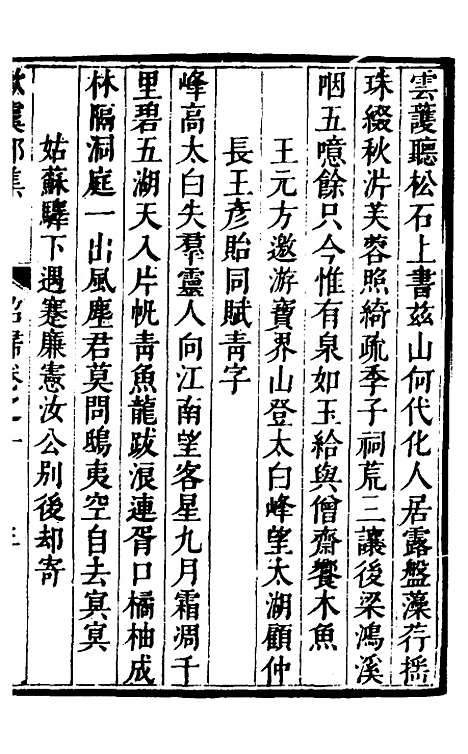 雲護聽松石上書兹山何代化人居露盤藻荇搖
珠綴秋沜芙蓉照綺疏季子祠荒三讓後梁鴻溪
咽五噫餘只今惟有泉如玉給與僧齋饗木魚
王元方邀游寶界山登太白峰望太湖顧仲
長王彥貽同賦青字
峰高太白失羣靈人向江南望客星九月霜凋千
里碧五湖天入片帆青魚龍跋浪連胥口橘柚成
林隔洞庭一出風塵君莫問鴟夷空自去冥冥
姑蘇驛下遇蹇廉憲汝公別後却寄